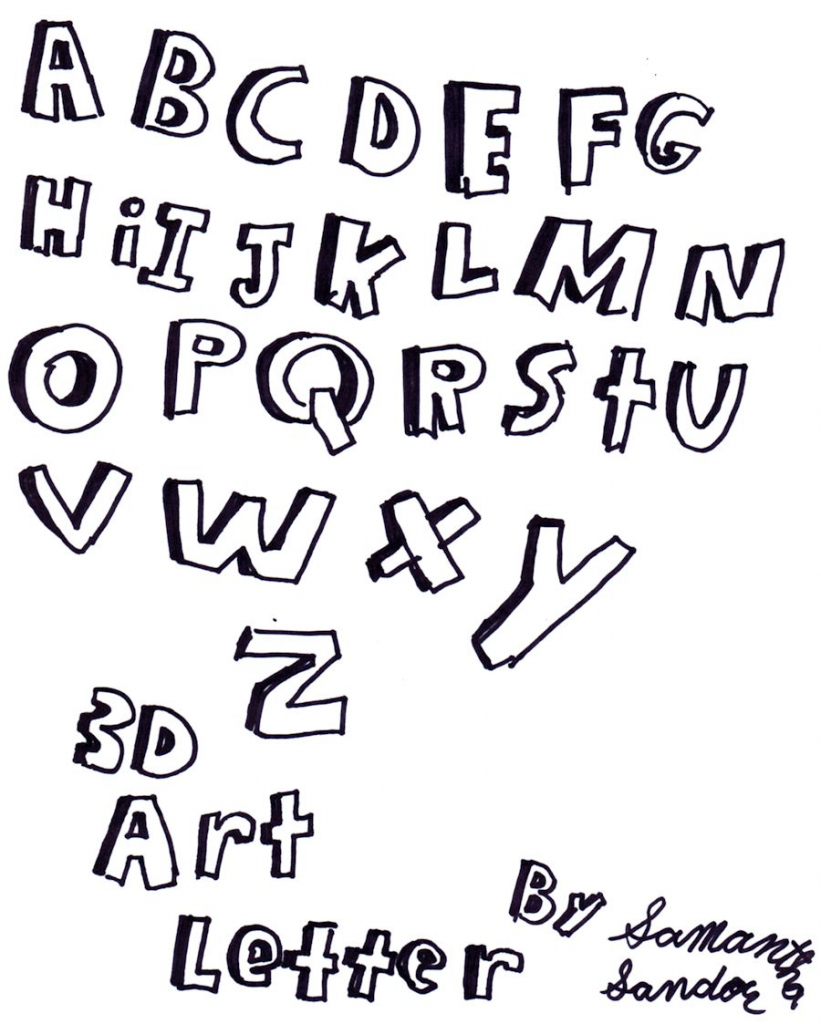 A B C D E F G
H i I J K L M N
O P Q R S t U
V W X Y
Z
3D
Art
Letter
By Samantha
Sandor